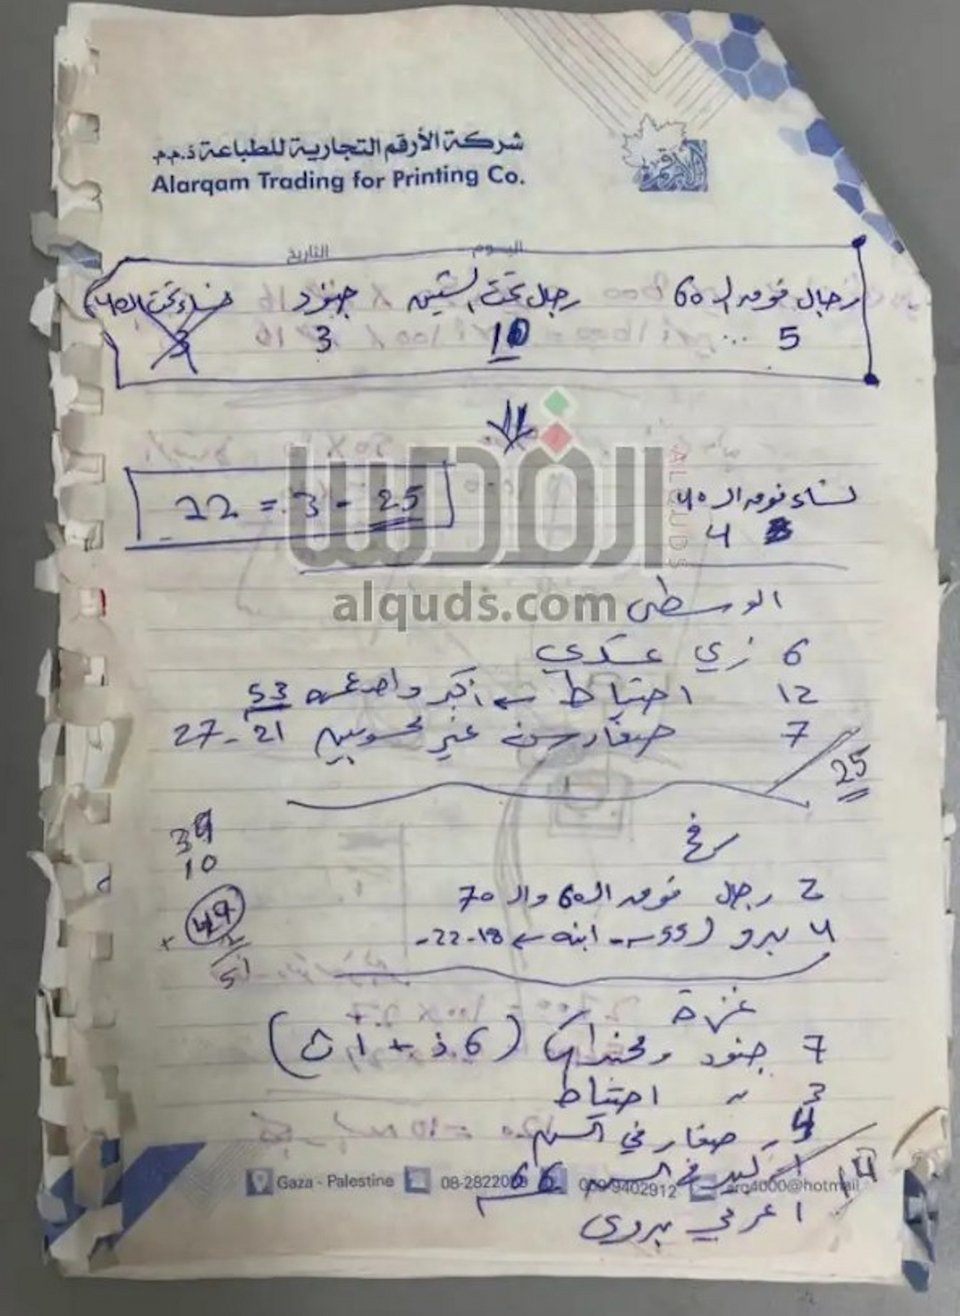 شركة الأرقم التجارية للطباعة ذ.م.م
Alarqam Trading for Printing Co.
اليوم التاريخ
رجال فوق الـ 60 رجال تحت الستين جنود نساء تحت الـ 40
5 10 3 3
القدس
ALQUDS
نساء فوق الـ 40
4
25 - 3 = 22
alquds.com
الوسطى
6 زي عسكري
12 احتياط ← أكبر واحد عمره 53
7 صغار سن غير محسوبين 21 - 27
25
39
10
49
2
51
رفح
2 رجال فوق الـ 60 والـ 70
4 بدو (55 - ابنه ← 18-22-
غزة
7 جنود ومجندات (6 ذ + 1 ث)
3 " احتياط
4 صغار في السن
1 كبير في السن 66
14
1 عربي بدوي
Gaza - Palestine